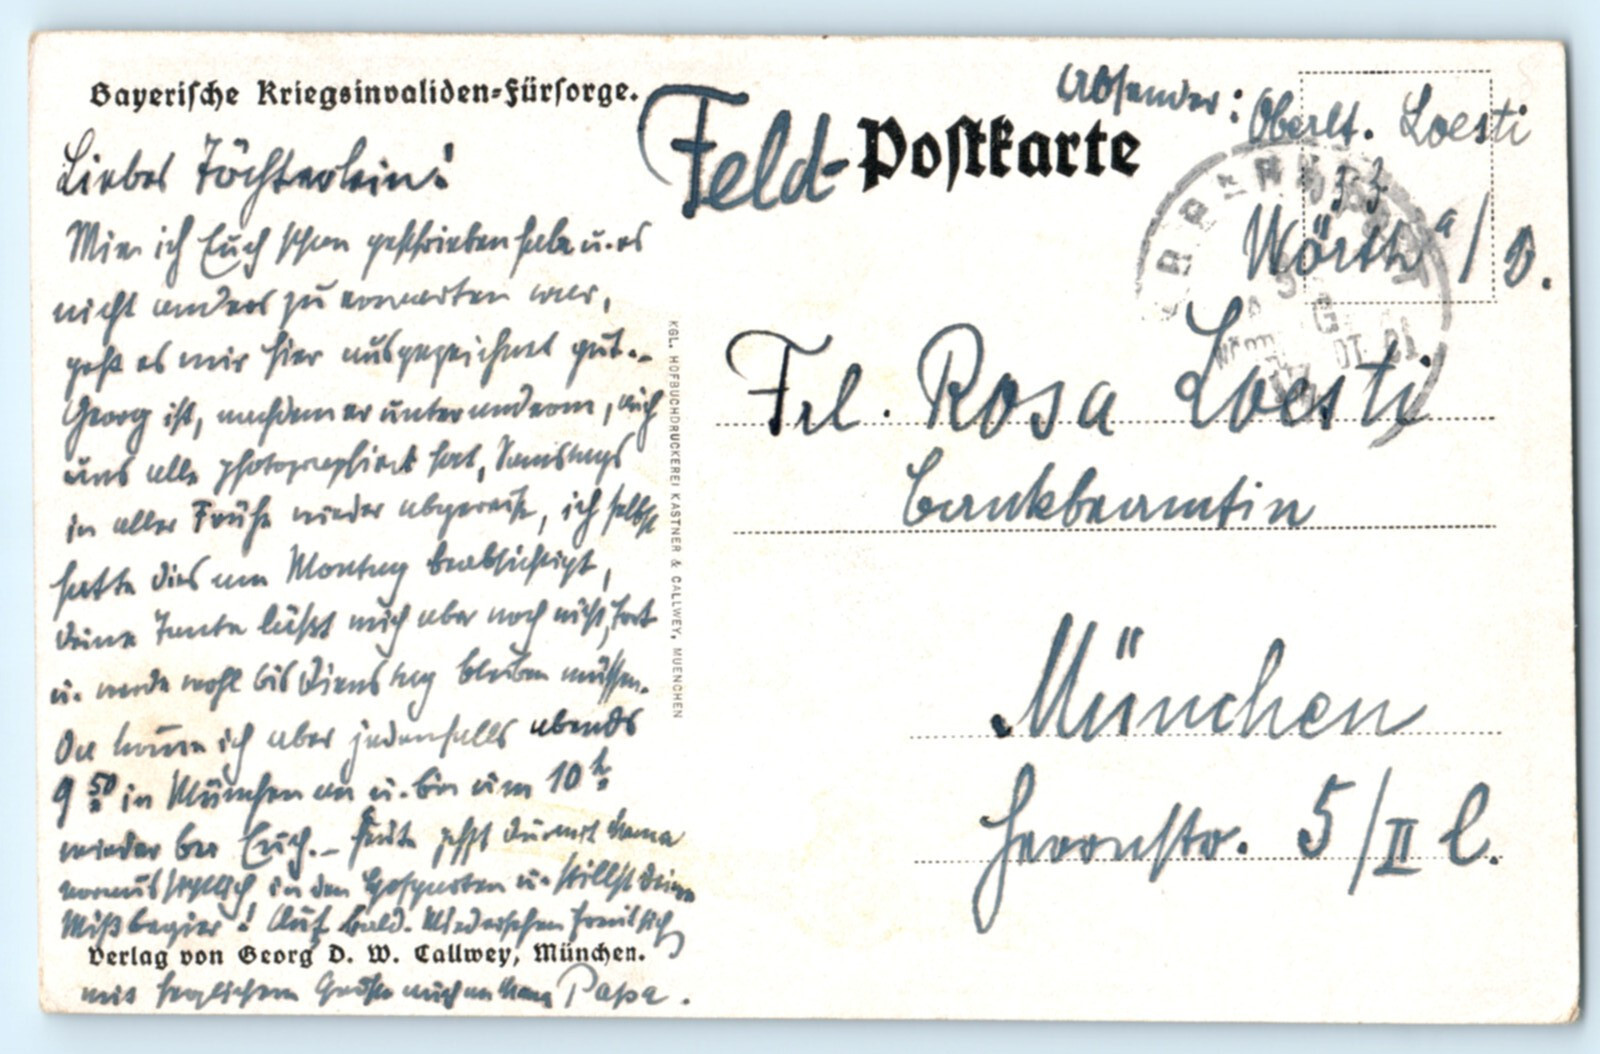 Bayerische Kriegsinvaliden-Fürsorge.
Liebes Töchterlein!
Wie ich Euch schon geschrieben habe u. es
nicht anders zu erwarten war,
geht es mir hier ausgezeichnet gut.–
Georg ist, nachdem er unter anderem, auch
uns alle photographiert hat, Samstags
in aller Frühe wieder abgereist, ich selbst
hatte dies am Montag beabsichtigt,
deine Tante läßt mich aber noch nicht fort
u. werde wohl bis Dienstag bleiben müssen.
Da komme ich aber jedenfalls abends
9 50 in München an u. bin um 10 h
wieder bei Euch.– Heute gehst du mit Mama
voraussichtlich in den Hofgarten u. stillst deine
Wißbegier! Auf bald. Wiedersehen freut sich
Verlag von Georg D. W. Callwey, München.
mit herzlichem Grüße auch an Mama Papa.
KGL. HOFBUCHDRUCKEREI KASTNER & CALLWEY, MUENCHEN
Feld-Postkarte
Absender: Oberlt. Loesti
Wörth a/D.
Frl. Rosa Loesti
Bankbeamtin
München
Herrnstr. 5/II l.